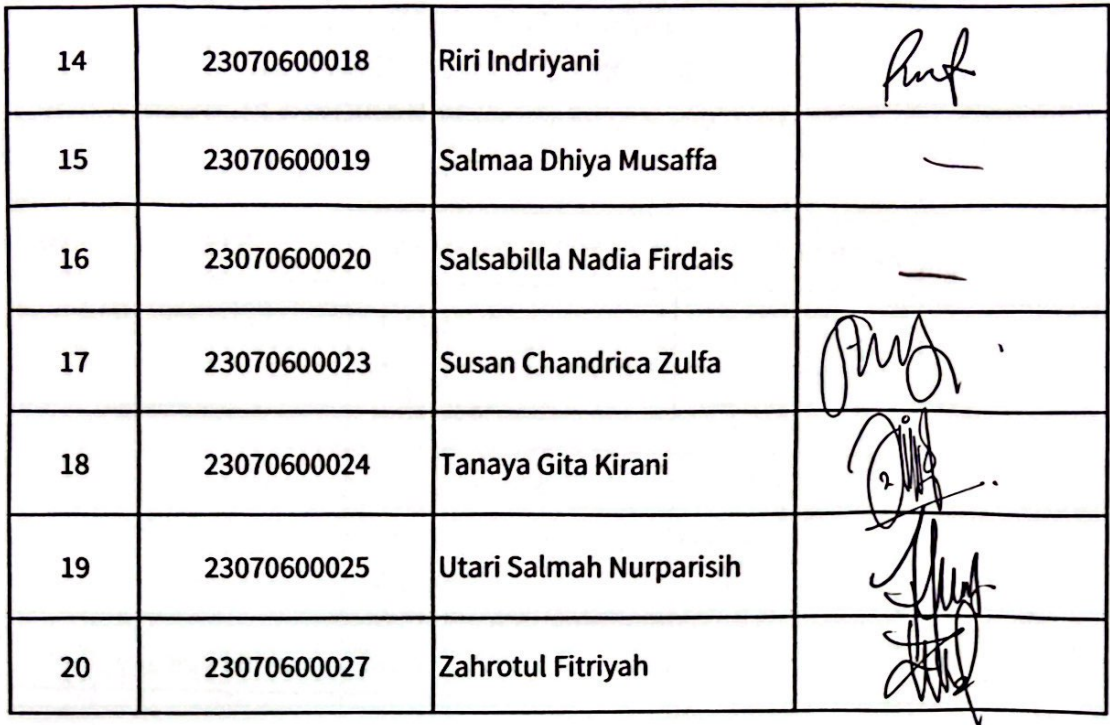 14 23070600018 Riri Indriyani
15 23070600019 Salmaa Dhiya Musaffa —
16 23070600020 Salsabilla Nadia Firdais —
17 23070600023 Susan Chandrica Zulfa
18 23070600024 Tanaya Gita Kirani
19 23070600025 Utari Salmah Nurparisih
20 23070600027 Zahrotul Fitriyah